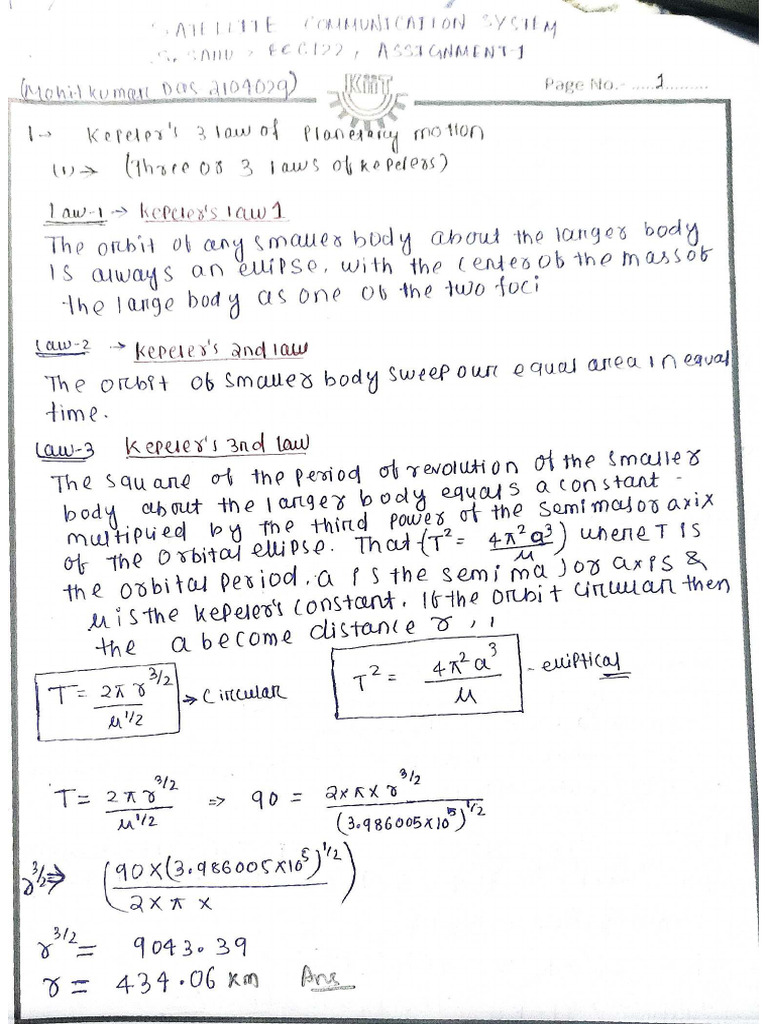 SATELLITE COMMUNICATION SYSTEM
S. SAHU, EEC122, ASSIGNMENT-1
(Mohit kumar Das 2104029)
KiiT
Page No.- .....1.........
1→ Kepeler's 3 law of planetary motion
(1)→ (Three or 3 laws of kepelers)
Law-1→ Kepeler's law 1
The orbit of any smaller body about the larger body
is always an ellipse, with the center of the mass of
the large body as one of the two foci
Law-2 → Kepeler's 2nd law
The orbit of smaller body sweep our equal area in equal
time.
Law-3 Kepeler's 3nd law
The square of the period of revolution of the smaller
body about the larger body equals a constant -
multiplied by the third power of the semimajor axix
of the orbital ellipse. That (T² = 4π²a³/μ) where T is
the orbital period, a is the semi major axis &
μ is the kepeler's constant. If the orbit circular then
the a become distance r,,
T = 2πr^3/2 / μ^1/2 → Circular
T² = 4π²a³/μ - elliptical
T = 2πr^3/2 / μ^1/2 ⇒ 90 = 2×π×r^3/2 / (3.986005×10⁵)^1/2
r^3/2 ⇒ (90×(3.986005×10⁵)^1/2 / 2×π×)
r^3/2 = 9043.39
r = 434.06 km Ans